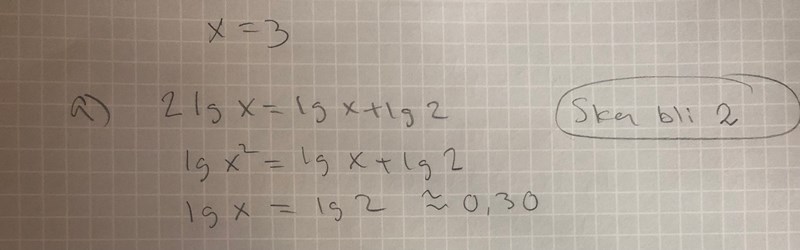 x = 3
a) 2 lg x = lg x + lg 2
Ska bli 2
lg x² = lg x + lg 2
lg x = lg 2 ≈ 0,30